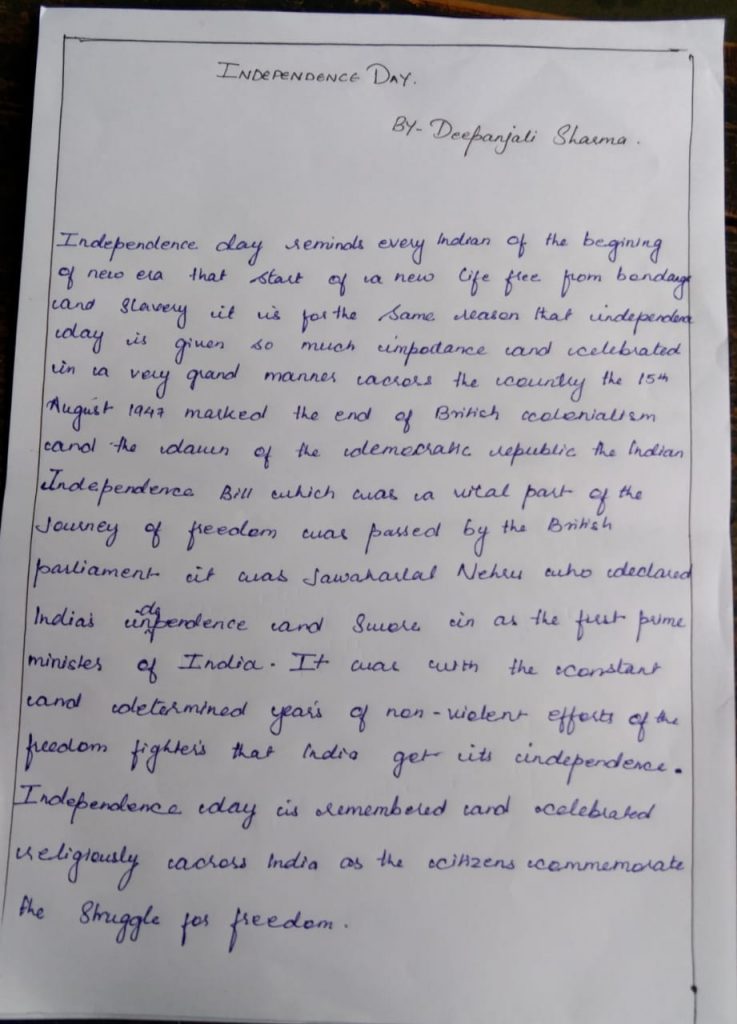 INDEPENDENCE DAY.
BY- Deepanjali Sharma.
Independence day reminds every Indian of the begining
of new era that start of a new life free from bondage
and slavery it is for the same reason that independence
day is given so much importance and celebrated
in a very grand manner across the country the 15th
August 1947 marked the end of British colonialism
and the dawn of the democratic republic the Indian
Independence Bill which was a vital part of the
Journey of freedom was passed by the British
parliament it was Jawaharlal Nehru who declared
India's independence and Swore in as the first prime
minister of India. It was with the constant
and determined years of non-violent efforts of the
freedom fighters that India get its independence.
Independence day is remembered and celebrated
religiously across India as the citizens commemorate
the Struggle for freedom.